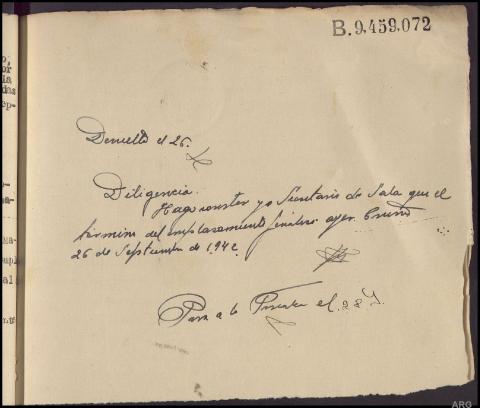 B.9,459.072
Devuelto el 26.
Diligencia.
Hago constar yo Secretario de Sala que el
término del emplazamiento finalizó ayer.
26 de Septiembre de 1942
Pasa a la Ponencia el 28
ARG